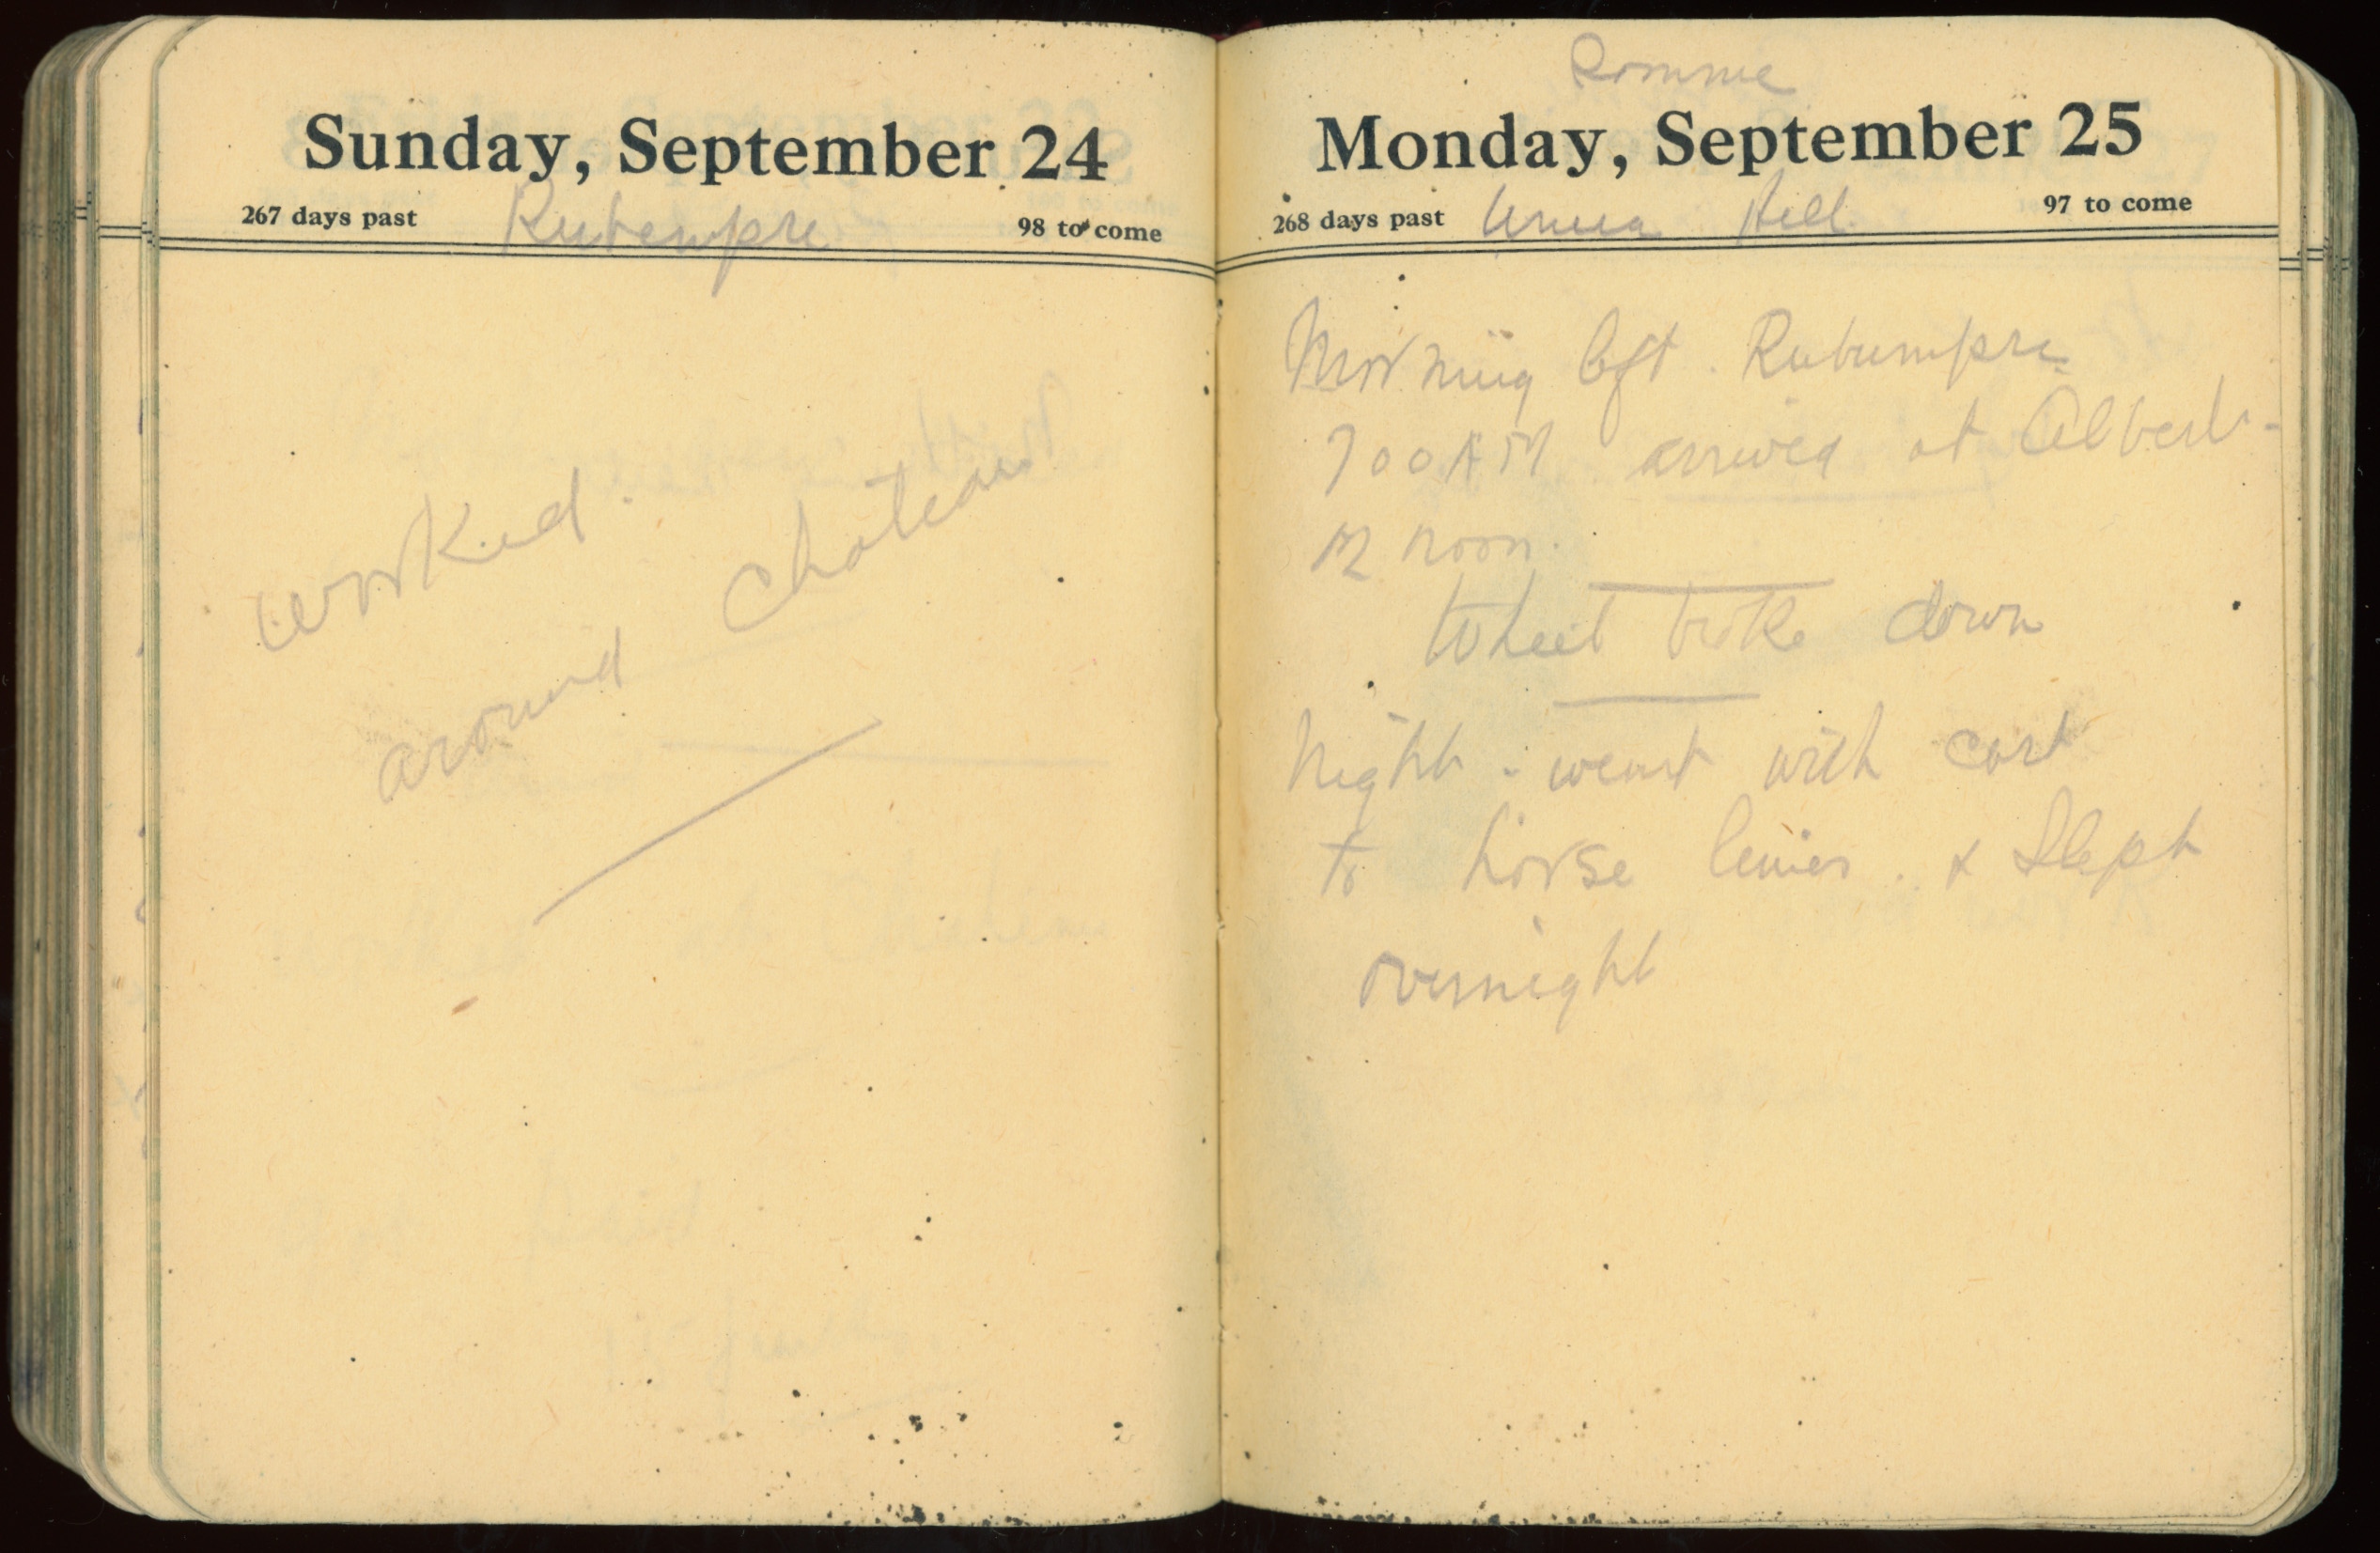 Sunday, September 24
267 days past Rubempre 98 to come
worked.
around chateau
Somme
Monday, September 25
268 days past Hill 97 to come
Morning left. Rubempre
700 AM arrived at Albert-
12 noon.
Wheel broke down
Night. went with cart
to horse lines. & Slept
overnight